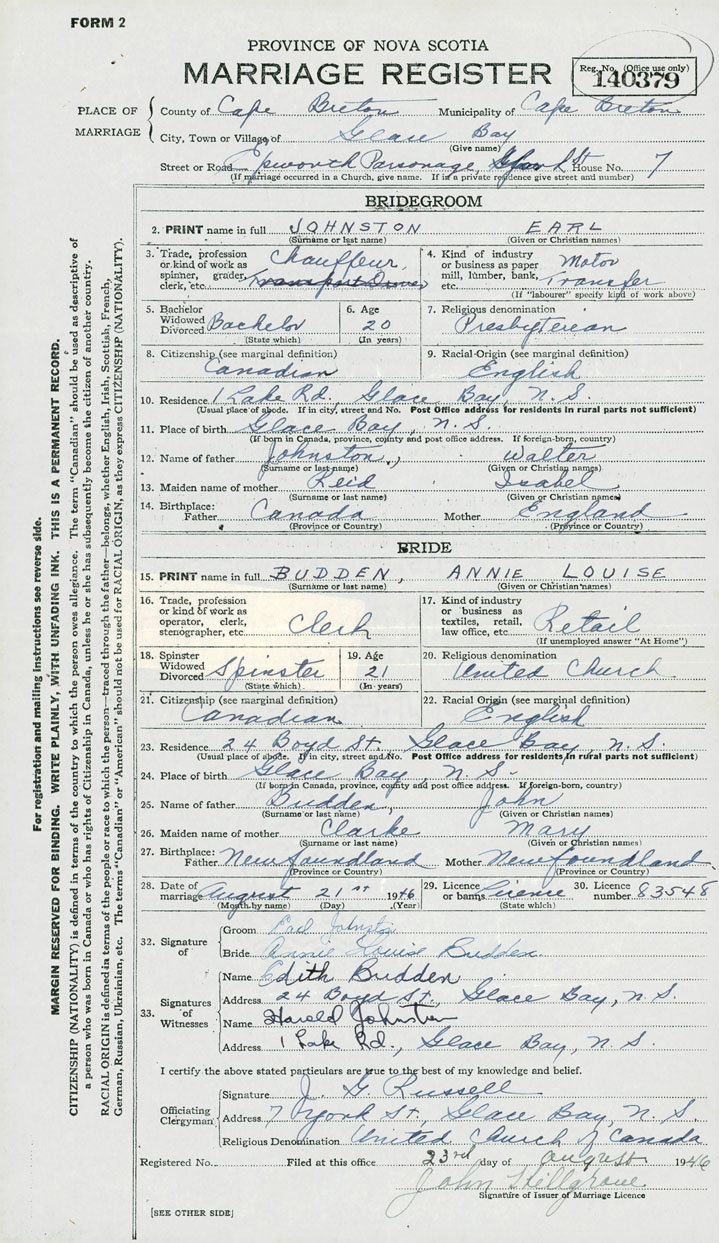 FORM 2
PROVINCE OF NOVA SCOTIA
MARRIAGE REGISTER
Reg. No. (Office use only)
140379
PLACE OF MARRIAGE
County of Cape Breton Municipality of Cape Breton
City, Town or Village of Glace Bay
(Give name)
Street or Road Epworth Parsonage, St House No. 7
(If marriage occurred in a Church, give name. If in a private residence give street and number)
BRIDEGROOM
2. PRINT name in full JOHNSTON EARL
(Surname or last name) (Given or Christian names)
3. Trade, profession or kind of work as spinner, grader, clerk, etc. Chauffeur, Transport Driver
4. Kind of industry or business as paper mill, lumber, bank, etc. Motor Transfer
(If "labourer" specify kind of work above)
5. Bachelor Widowed Divorced Bachelor
(State which)
6. Age 20
(In years)
7. Religious denomination
Presbyterian
8. Citizenship (see marginal definition)
Canadian
9. Racial Origin (see marginal definition)
English
10. Residence 1 Lake Rd., Glace Bay, N. S.
(Usual place of abode. If in city, street and No. Post Office address for residents in rural parts not sufficient)
11. Place of birth Glace Bay, N. S.
(If born in Canada, province, county and post office address. If foreign-born, country)
12. Name of father Johnston, Walter
(Surname or last name) (Given or Christian names)
13. Maiden name of mother Reid Isabel
(Surname or last name) (Given or Christian names)
14. Birthplace: Father Canada Mother England
(Province or Country) (Province or Country)
BRIDE
15. PRINT name in full BUDDEN, ANNIE LOUISE
(Surname or last name) (Given or Christian names)
16. Trade, profession or kind of work as operator, clerk, stenographer, etc. Clerk
17. Kind of industry or business as textiles, retail, law office, etc. Retail
(If unemployed answer "At Home")
18. Spinster Widowed Divorced Spinster
(State which)
19. Age 21
(In years)
20. Religious denomination
United Church
21. Citizenship (see marginal definition)
Canadian
22. Racial Origin (see marginal definition)
English
23. Residence 24 Boyd St. Glace Bay, N. S.
(Usual place of abode. If in city, street and No. Post Office address for residents in rural parts not sufficient)
24. Place of birth Glace Bay, N. S.
(If born in Canada, province, county and post office address. If foreign-born, country)
25. Name of father Budden, John
(Surname or last name) (Given or Christian names)
26. Maiden name of mother Clarke Mary
(Surname or last name) (Given or Christian names)
27. Birthplace: Father Newfoundland Mother Newfoundland
(Province or Country) (Province or Country)
28. Date of marriage August 21st 1946
(Month by name) (Day) (Year)
29. Licence or banns licence
(State which)
30. Licence number 83548
32. Signature of
Groom Earl Johnston
Bride Annie Louise Budden
33. Signatures of Witnesses
Name Edith Budden
Address 24 Boyd St., Glace Bay, N. S.
Name Harold Johnston
Address 1 Lake Rd., Glace Bay, N. S.
I certify the above stated particulars are true to the best of my knowledge and belief.
Officiating Clergyman
Signature J. G. Russell
Address 7 York St, Glace Bay, N. S
Religious Denomination United Church of Canada
Registered No. Filed at this office 23rd day of August 1946
John Hillgrove
Signature of Issuer of Marriage Licence
[SEE OTHER SIDE]
For registration and mailing instructions see reverse side.
MARGIN RESERVED FOR BINDING. WRITE PLAINLY, WITH UNFADING INK. THIS IS A PERMANENT RECORD.
CITIZENSHIP (NATIONALITY) is defined in terms of the country to which the person owes allegiance. The term "Canadian" should be used as descriptive of
a person who was born in Canada or who has rights of Citizenship in Canada, unless he or she has subsequently become the citizen of another country.
RACIAL ORIGIN is defined in terms of the people or race to which the person—traced through the father—belongs, whether English, Irish, Scottish, French,
German, Russian, Ukrainian, etc. The terms "Canadian" or "American" should not be used for RACIAL ORIGIN, as they express CITIZENSHIP (NATIONALITY).